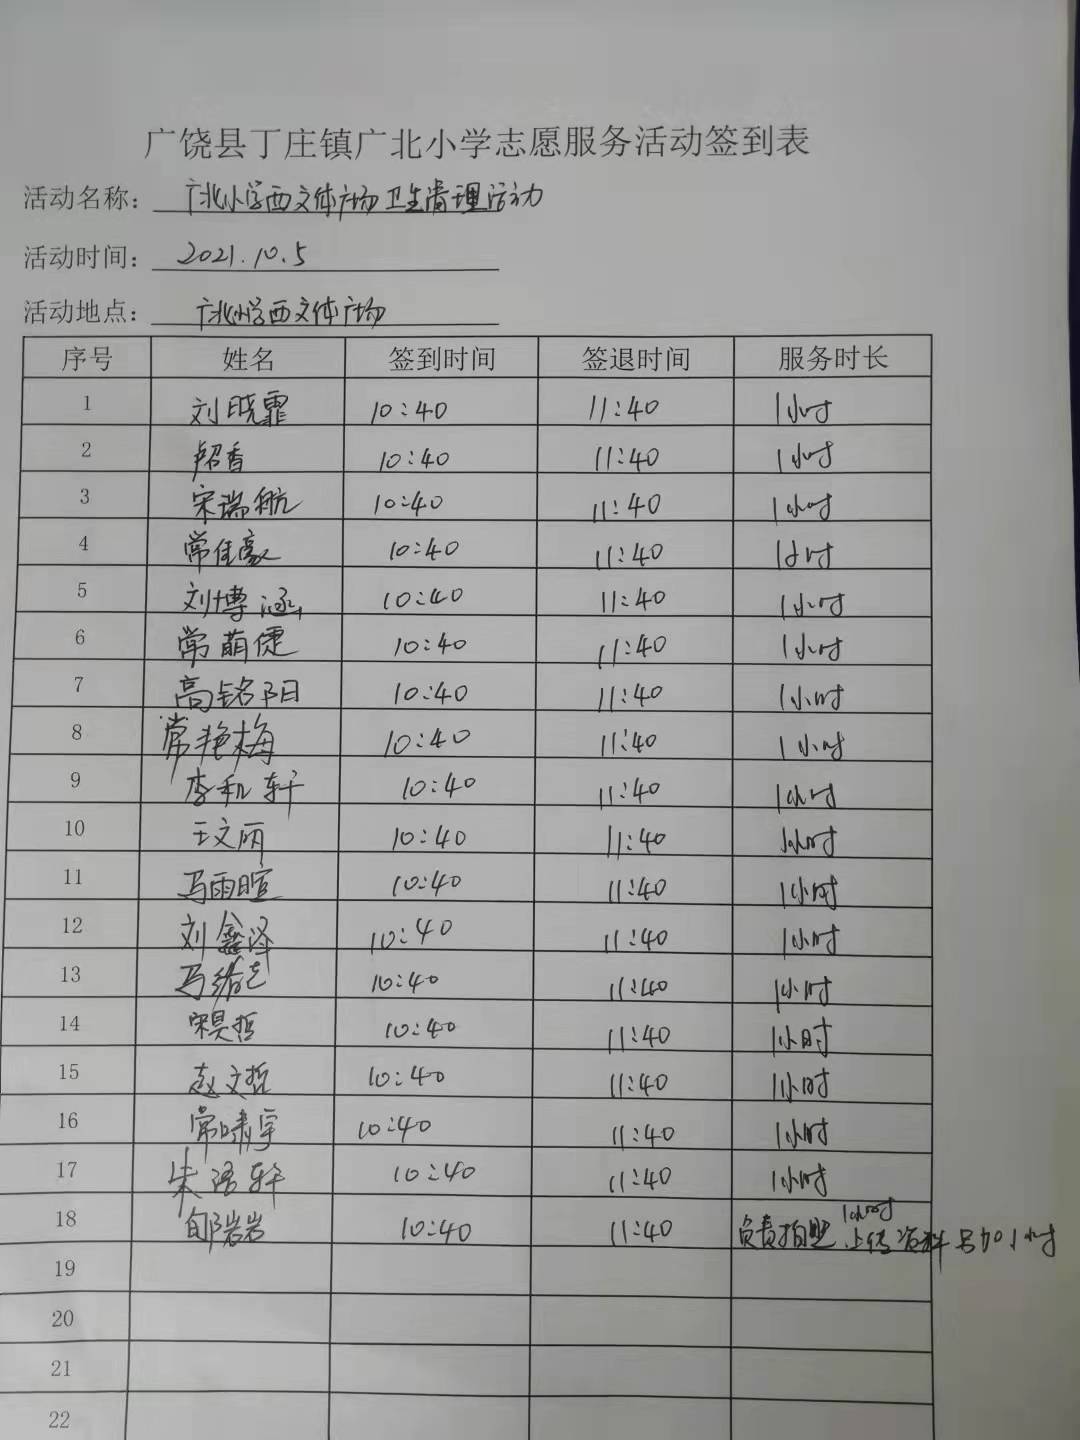 广饶县丁庄镇广北小学志愿服务活动签到表
活动名称： 广北小学西文体广场卫生清理活动
活动时间： 2021.10.5
活动地点： 广北小学西文体广场
序号 姓名 签到时间 签退时间 服务时长
1 刘晓霏 10:40 11:40 1小时
2 香 10:40 11:40 1小时
3 宋瑞航 10:40 11:40 1小时
4 常佳豪 10:40 11:40 1小时
5 刘博涵 10:40 11:40 1小时
6 常萌倢 10:40 11:40 1小时
7 高铭阳 10:40 11:40 1小时
8 常艳梅 10:40 11:40 1小时
9 李和轩 10:40 11:40 1小时
10 王文丽 10:40 11:40 1小时
11 马雨暄 10:40 11:40 1小时
12 刘鑫泽 10:40 11:40 1小时
13 马 10:40 11:40 1小时
14 宋昊哲 10:40 11:40 1小时
15 赵文哲 10:40 11:40 1小时
16 常啸宇 10:40 11:40 1小时
17 朱语轩 10:40 11:40 1小时
18 郇岩岩 10:40 11:40 1小时
负责拍照 上传资料 另加1小时
19
20
21
22